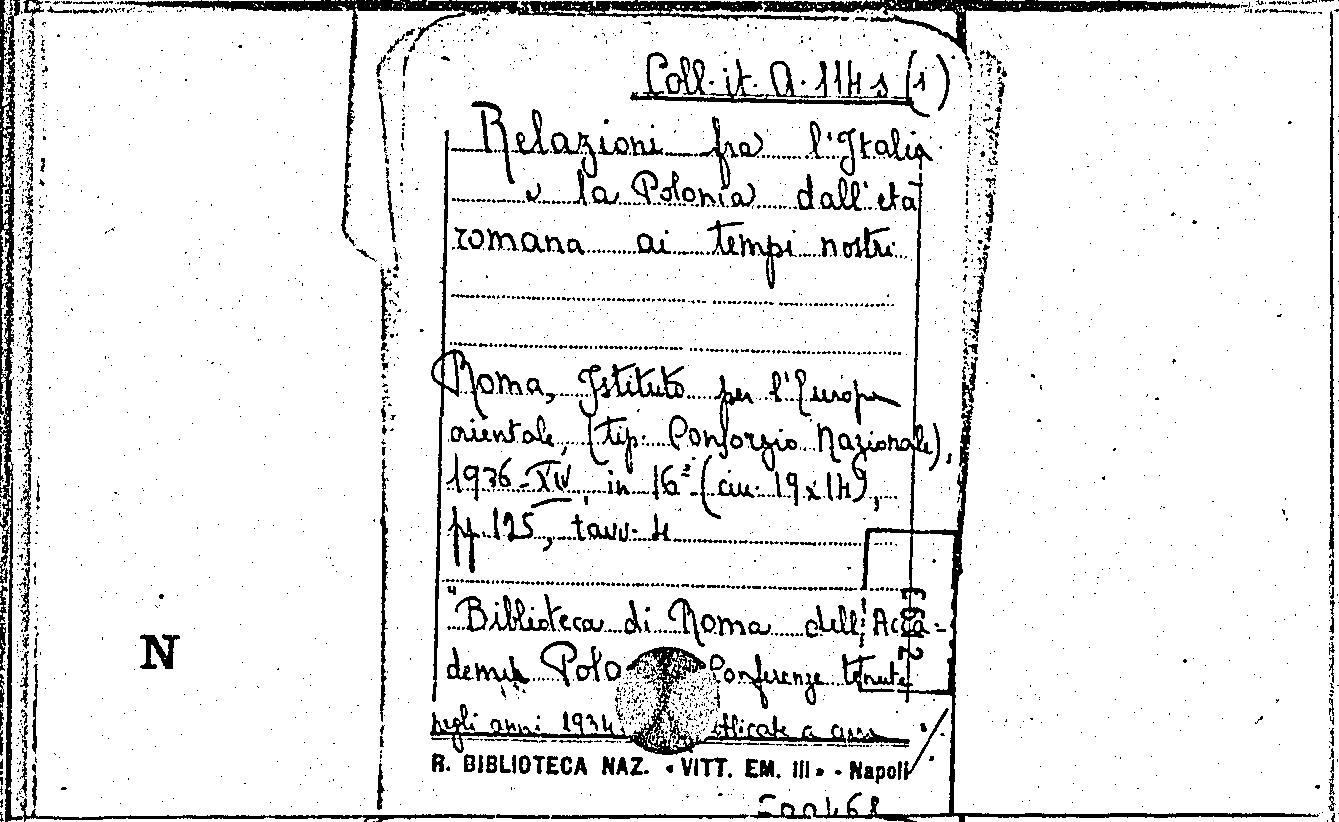 Coll. it. A. 114 s (1)
Relazioni fra l'Italia
e la Polonia dall'età
romana ai tempi nostri
Roma, Istituto per l'Europa
orientale, (tip. Consorzio Nazionale),
1936-XIV, in 16° (cm. 19x14),
pp. 125, tavv. 4
"Biblioteca di Roma dell'Acca-
demia Polo Conferenze tenute
negli anni 1934 a cura
R. BIBLIOTECA NAZ. «VITT. EM. III» - Napoli
N